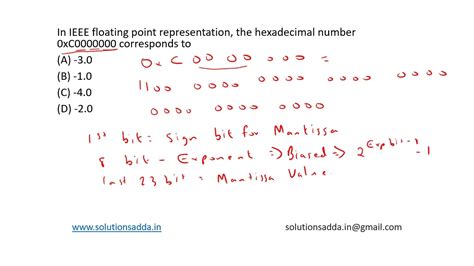 In IEEE floating point representation, the hexadecimal number
0xC0000000 corresponds to
(A) -3.0
(B) -1.0
(C) -4.0
(D) -2.0
0x C 00 00 000 =
1100 0000 0000 0000 0000
0000 0000 0000
1st bit: Sign bit for Mantissa
8 bit - Exponent => Biased => 2^Exp bit-1 -1
last 23 bit = Mantissa Value
www.solutionsadda.in solutionsadda.in@gmail.com